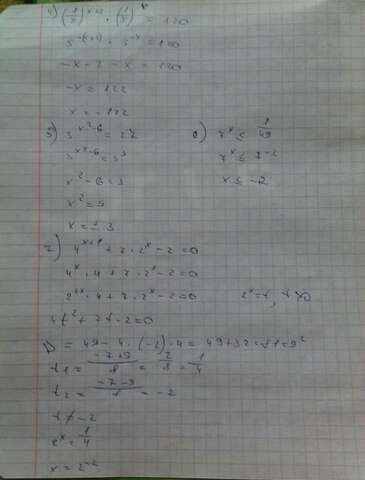 5^-(x+2) · 5^-x = 120
-x - 2 - x = 120
-x = 122
x = -122
5) 3^(x²-6) = 27
3^(x²-6) = 3³
x² - 6 = 3
x² = 9
x = ± 3
6) 7^x ≤ 1/49
7^x ≤ 7^-2
x ≤ -2
7) 4^(x+1) + 7 · 2^x - 2 = 0
4^x · 4 + 7 · 2^x - 2 = 0
2^2x · 4 + 7 · 2^x - 2 = 0 2^x = t, t > 0
4t² + 7t - 2 = 0
D = 49 - 4 · (-2) · 4 = 49 + 32 = 81 = 9²
t1 = (-7+9)/8 = 2/8 = 1/4
t2 = (-7-9)/8 = -2
t ≠ -2
2^x = 1/4
x = 2^-2